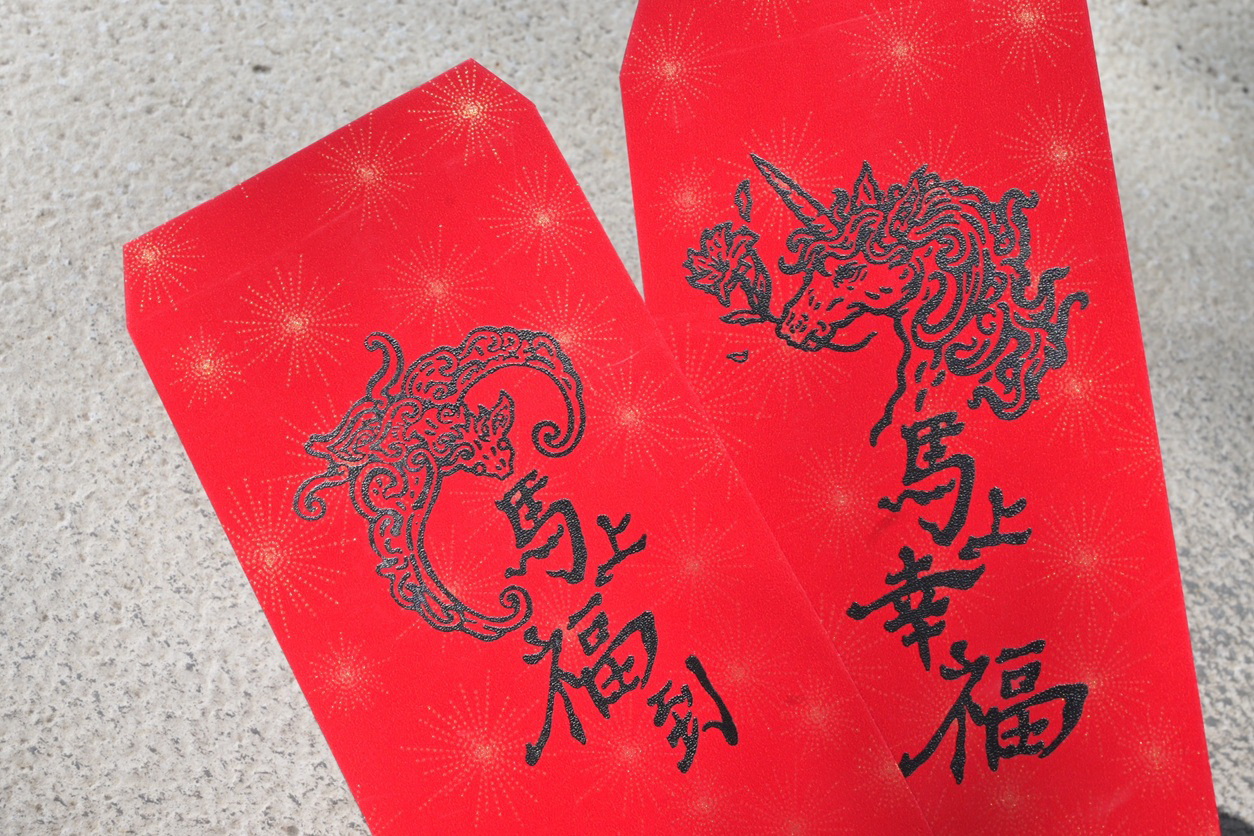 馬上
福到
馬上
幸福